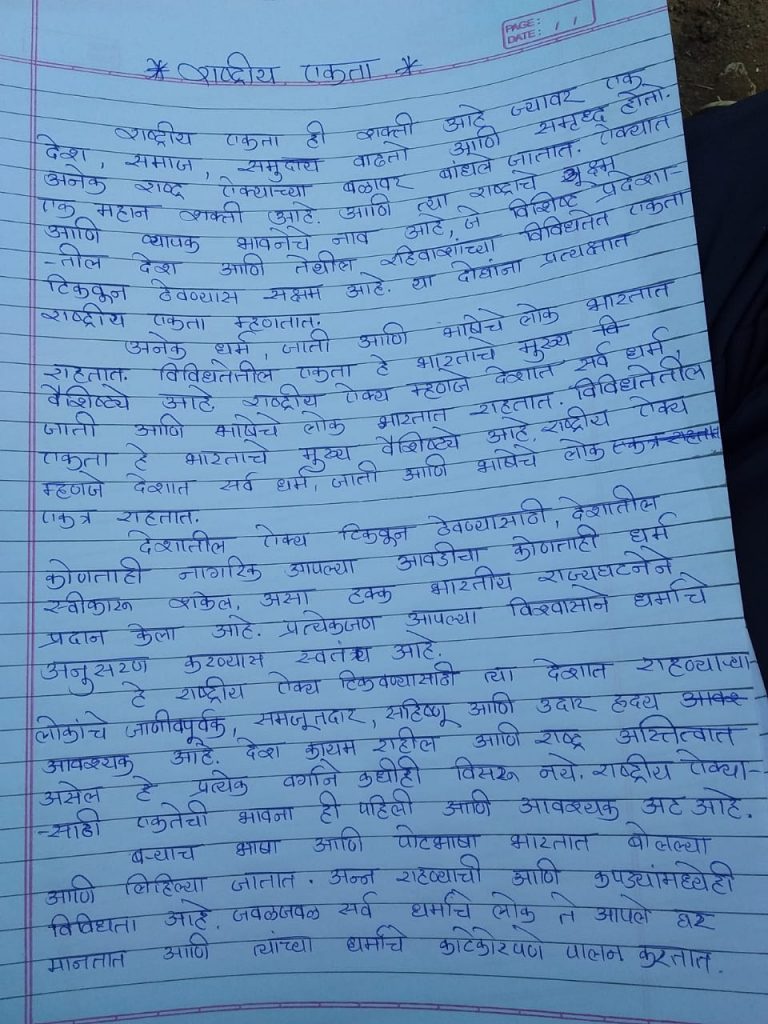 PAGE: / /
DATE:
* राष्ट्रीय एकता *
राष्ट्रीय एकता ही शक्ती आहे ज्यावर एक
देश, समाज, समुदाय वाढतो आणि समृध्द होतो.
अनेक राष्ट्र ऐक्याच्या बळावर बांधले जातात. ऐक्यात
एक महान शक्ती आहे. आणि त्या राष्ट्राचे सूक्ष्म
आणि व्यापक भावनेचे नाव आहे, जे विशिष्ट प्रदेशा-
-तील देश आणि तेथील रहिवाशांच्या विविधतेत एकता
टिकवून ठेवण्यास सक्षम आहे. या दोघांना प्रत्यक्षात
राष्ट्रीय एकता म्हणतात.
अनेक धर्म, जाती आणि भाषेचे लोक भारतात
राहतात. विविधतेतील एकता हे भारताचे मुख्य
वैशिष्ट्ये आहे. राष्ट्रीय ऐक्य म्हणजे देशात सर्व धर्म,
जाती आणि भाषेचे लोक भारतात राहतात. विविधतेतील
एकता हे भारताचे मुख्य वैशिष्ट्ये आहे. राष्ट्रीय ऐक्य
म्हणजे देशात सर्व धर्म, जाती आणि भाषेचे लोक
एकत्र राहतात.
देशातील ऐक्य टिकवून ठेवण्यासाठी, देशातील
कोणताही नागरिक आपल्या आवडीचा कोणताही धर्म
स्वीकारू शकेल, असा हक्क भारतीय राज्यघटनेने
प्रदान केला आहे. प्रत्येकजण आपल्या विश्वासाने धर्माचे
अनुसरण करण्यास स्वतंत्र आहे.
हे राष्ट्रीय ऐक्य टिकवण्यासाठी त्या देशात राहण्याऱ्या-
लोकांचे जाणीवपूर्वक, समजूतदार, सहिष्णू आणि उदार हृदय
आवश्यक आहे. देश कायम राहील आणि राष्ट्र अस्तित्वात
असेल हे प्रत्येक वर्गाने कधीही विसरू नये. राष्ट्रीय ऐक्या-
-साठी एकतेची भावना ही पहिली आणि आवश्यक अट आहे.
बऱ्याच भाषा आणि पोटभाषा भारतात बोलल्या
आणि लिहिल्या जातात. अन्न राहण्याची आणि कपड्यांमध्येही
विविधता आहे. जवळजवळ सर्व धर्माचे लोक ते आपले घर
मानतात आणि त्यांच्या धर्माचे काटेकोरपणे पालन करतात.